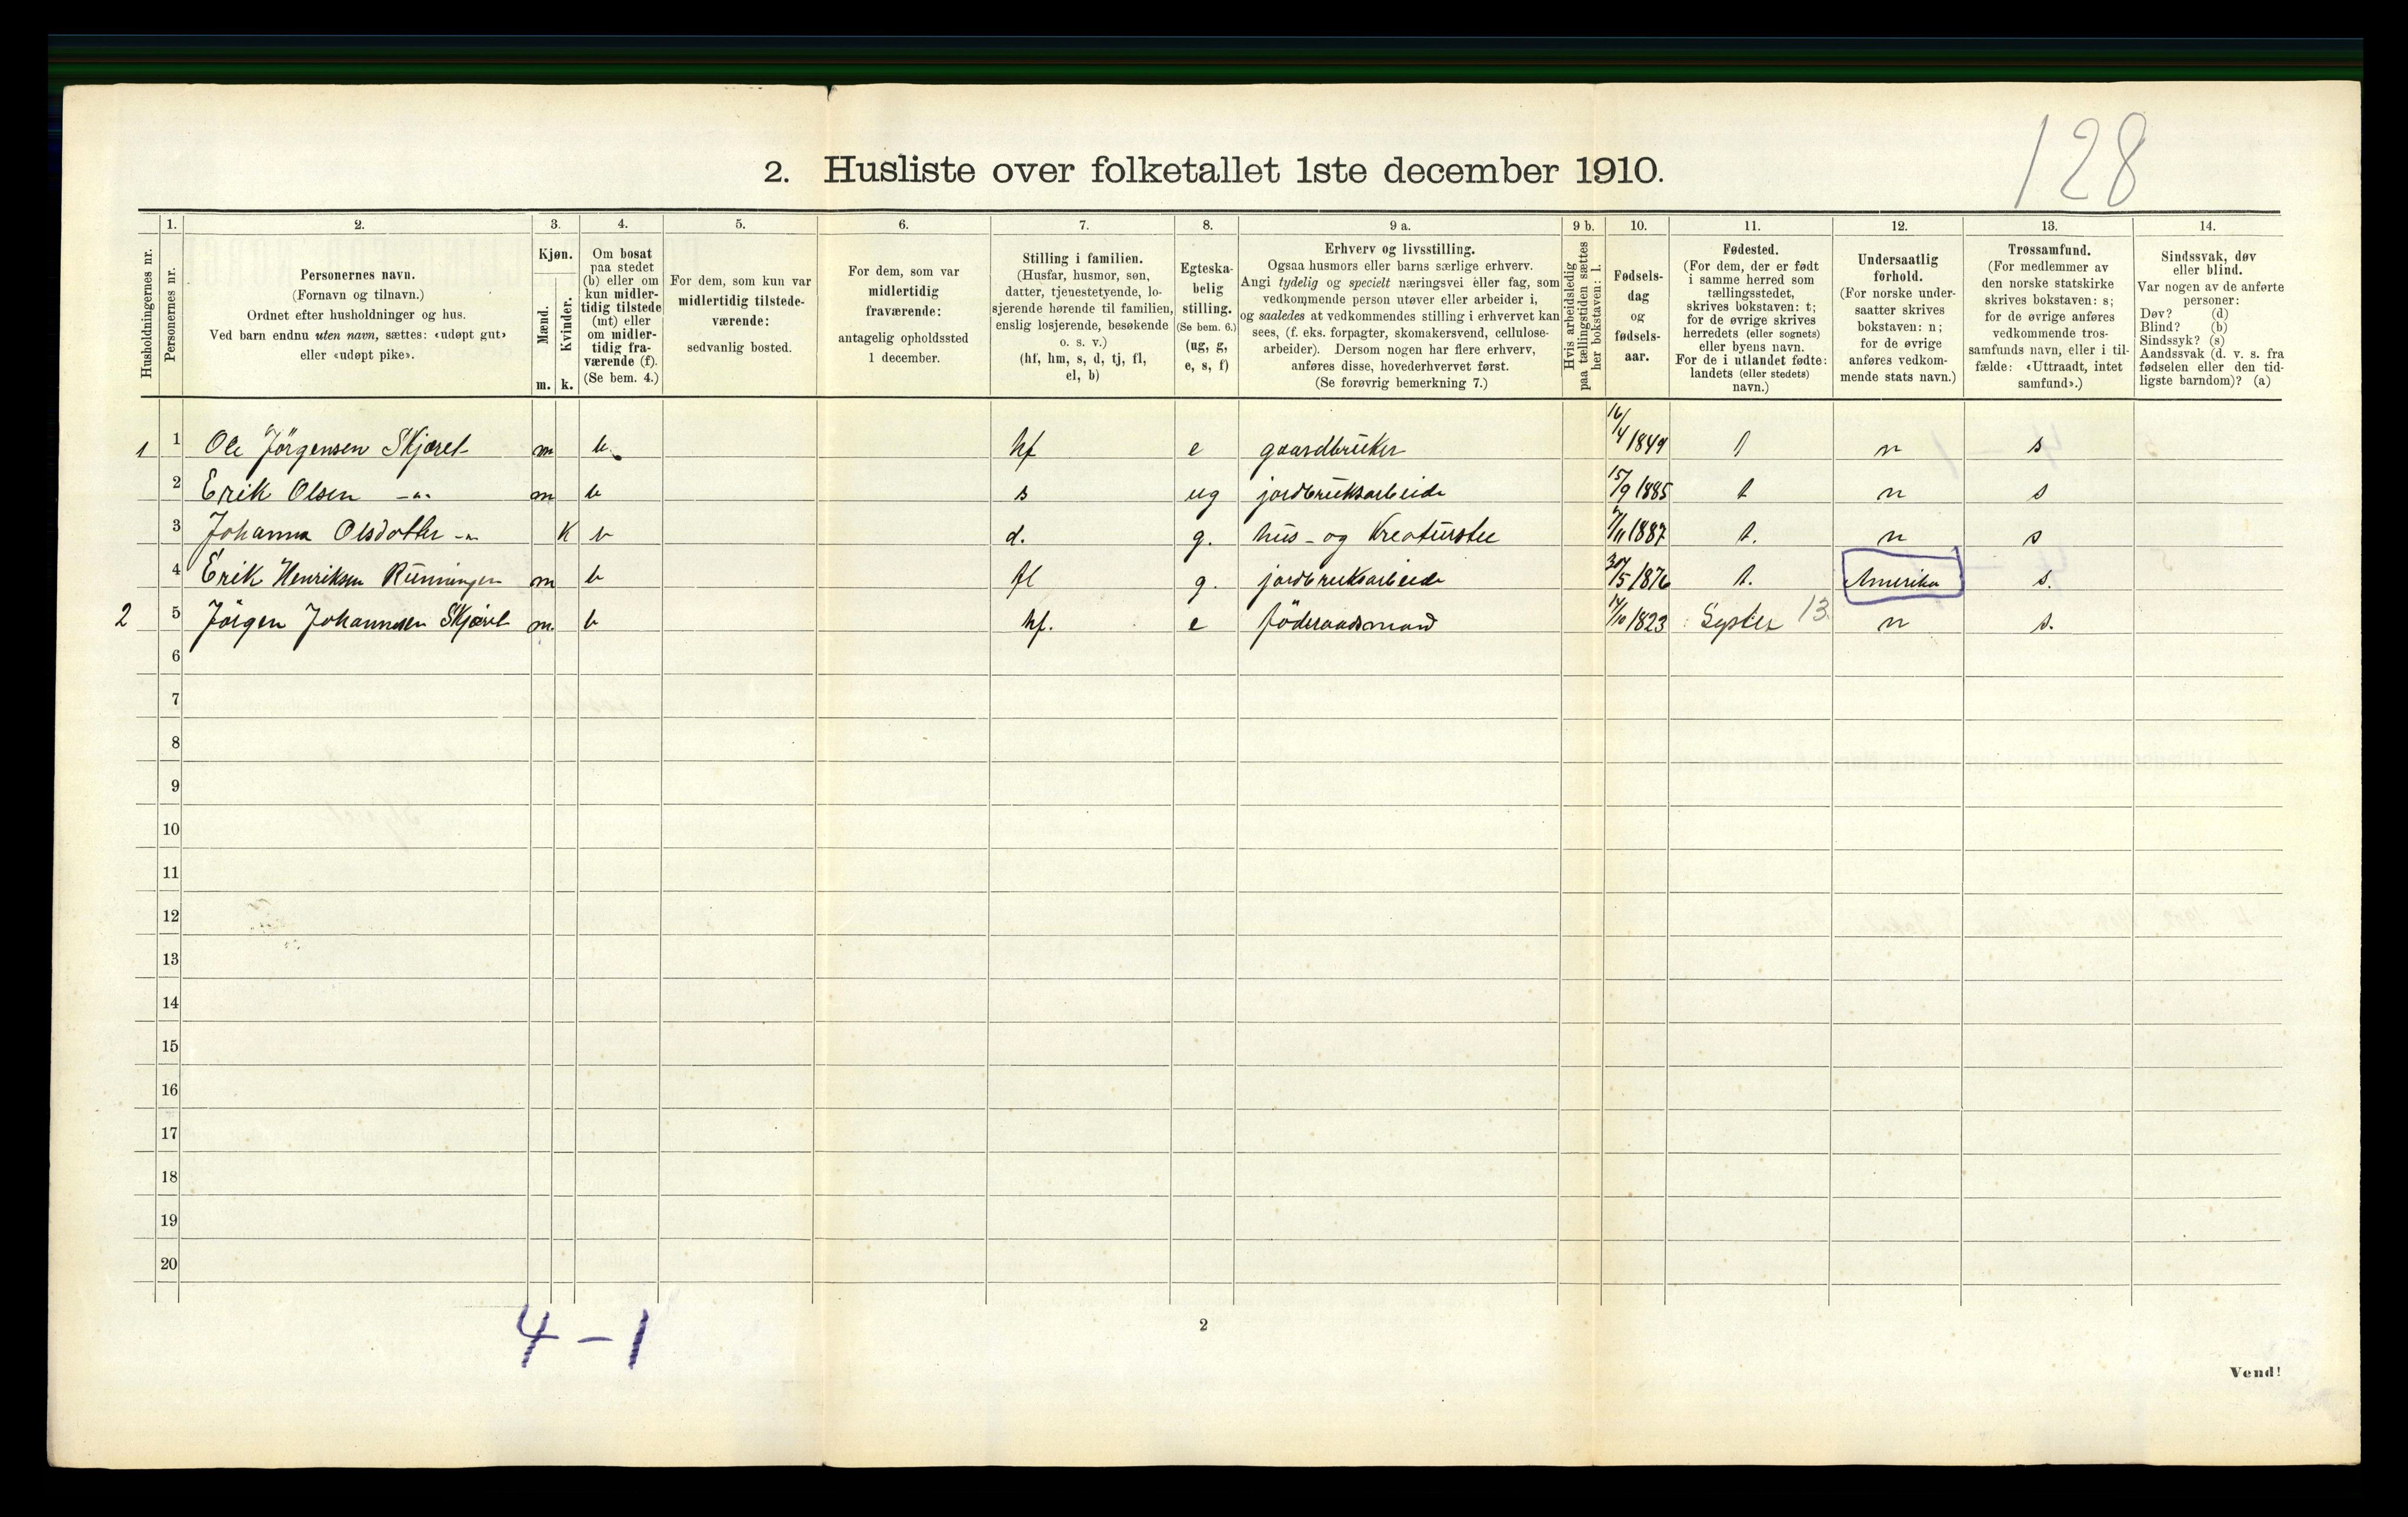 128
2. Husliste over folketallet 1ste december 1910.
Husholdningernes nr.
1.
Personernes nr.
2.
Personernes navn.
(Fornavn og tilnavn.)
Ordnet efter husholdninger og hus.
Ved barn endnu uten navn, sættes: «udøpt gut»
eller «udøpt pike».
3.
Kjøn.
Mænd.
Kvinder.
m. k.
4.
Om bosat
paa stedet
(b) eller om
kun midler-
tidig tilstede
(mt) eller
om midler-
tidig fra-
værende (f).
(Se bem. 4.)
5.
For dem, som kun var
midlertidig tilstede-
værende:
sedvanlig bosted.
6.
For dem, som var
midlertidig
fraværende:
antagelig opholdssted
1 december.
7.
Stilling i familien.
(Husfar, husmor, søn,
datter, tjenestetyende, lo-
sjerende hørende til familien,
enslig losjerende, besøkende
o. s. v.)
(hf, hm, s, d, tj, fl,
el, b)
8.
Egteska-
belig
stilling.
(Se bem. 6.)
(ug, g,
e, s, f)
9 a.
Erhverv og livsstilling.
Ogsaa husmors eller barns særlige erhverv.
Angi tydelig og specielt næringsvei eller fag, som
vedkommende person utøver eller arbeider i,
og saaledes at vedkommendes stilling i erhvervet kan
sees, (f. eks. forpagter, skomakersvend, cellulose-
arbeider). Dersom nogen har flere erhverv,
anføres disse, hovederhvervet først.
(Se forøvrig bemerkning 7.)
9 b.
Hvis arbeidsledig
paa tællingstiden sættes
her bokstaven: l.
10.
Fødsels-
dag
og
fødsels-
aar.
11.
Fødested.
(For dem, der er født
i samme herred som
tællingsstedet,
skrives bokstaven: t;
for de øvrige skrives
herredets (eller sognets)
eller byens navn.
For de i utlandet fødte:
landets (eller stedets)
navn.)
12.
Undersaatlig
forhold.
(For norske under-
saatter skrives
bokstaven: n;
for de øvrige
anføres vedkom-
mende stats navn.)
13.
Trossamfund.
(For medlemmer av
den norske statskirke
skrives bokstaven: s;
for de øvrige anføres
vedkommende tros-
samfunds navn, eller i til-
fælde: «Uttraadt, intet
samfund».)
14.
Sindssvak, døv
eller blind.
Var nogen av de anførte
personer:
Døv? (d)
Blind? (b)
Sindssyk? (s)
Aandssvak (d. v. s. fra
fødselen eller den tid-
ligste barndom)? (a)
1 1 Ole Jörgensen Skjæret m b hf e gaardbruker 16/4 1849 t n s
2 Erik Olsen -"- m b s ug jordbruksarbeide 15/9 1885 t n s
3 Johanna Olsdotter -"- K b d. g. hus- og Kreaturstee 1887 t. n s
4 Erik Henriksen Runningen m b fl g. jordbruksarbeide 30/5 1876 t. Amerika s.
2 5 Jörgen Johannesen Skjæret m. b hf. e föderaadsmand 14/10 1823 13 n s.
6
7
8
9
10
11
12
13
14
15
16
17
18
19
20
4 - 1
2
Vend!